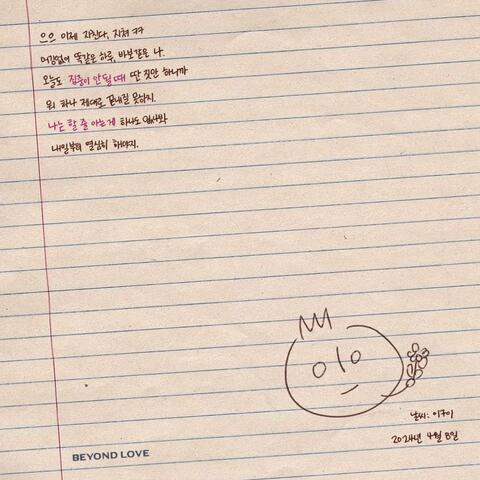 으으 이제 지친다, 지쳐 ㅋㅋ
어김없이 똑같은 하루, 바보 같은 나.
오늘도 집중이 안 될 때 딴 짓만 하니까
뭐 하나 제대로 끝내질 못하지.
나는 할 줄 아는 게 하나도 없나봐
내일부터 열심히 해야지.
날씨: 이구이
2024년 4월 8일
BEYOND LOVE